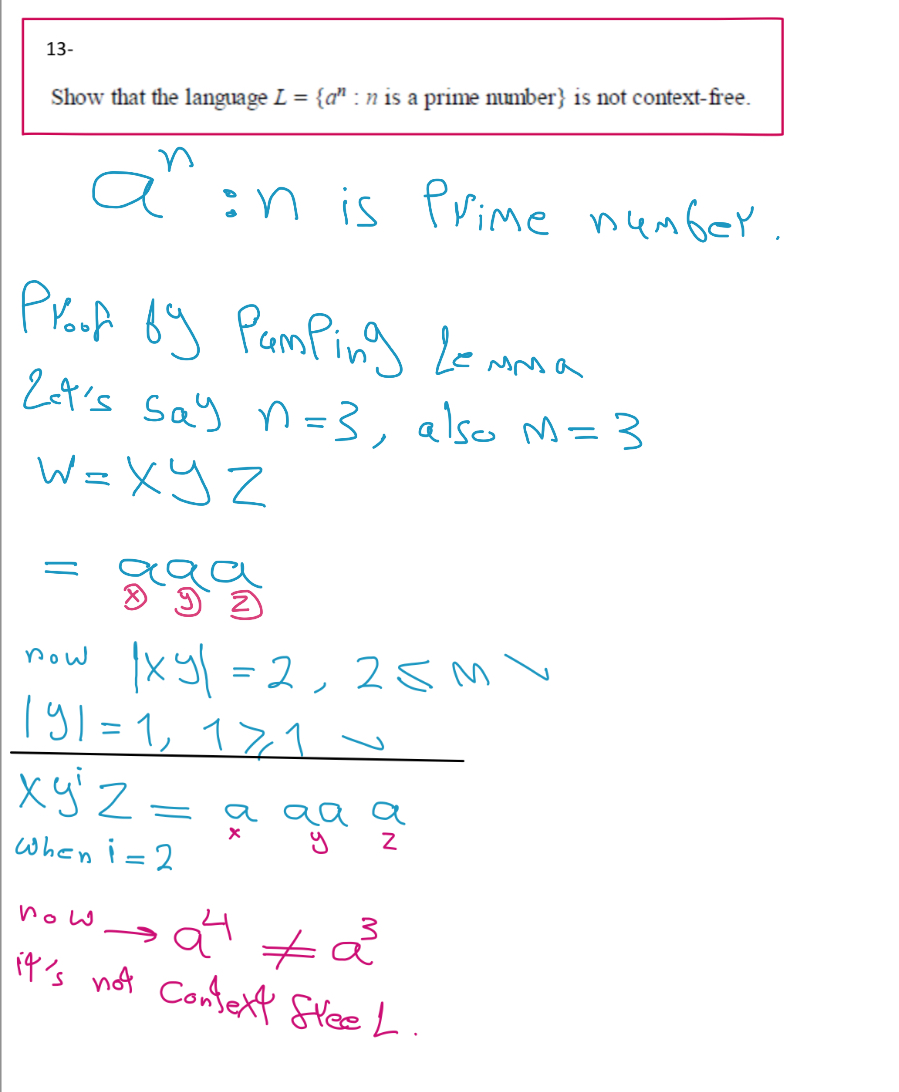 13-
Show that the language L = {aⁿ : n is a prime number} is not context-free.
aⁿ : n is Prime number.
Proof by Pumping Lemma
Let's say n = 3, also M = 3
W = X Y Z
= a a a
x y z
now |xy| = 2, 2 ≤ M ✓
|y| = 1, 1 ⩾ 1 ✓
xyⁱz = a aa a
x y z
when i = 2
now → a⁴ ≠ a³
it's not Context free L.